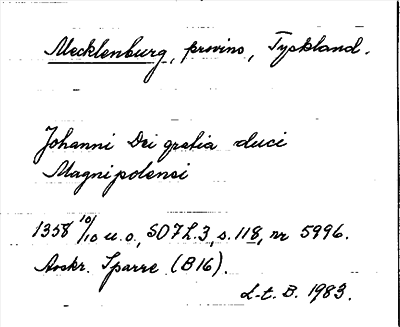 Mecklenburg, provins, Tyskland.
Johanni Dei gratia duci
Magnipolensi
1358 10/10 u.o., SD 7 h.3, s.118, nr 5996.
Avskr. Sparre (B16).
L-t. B. 1983.